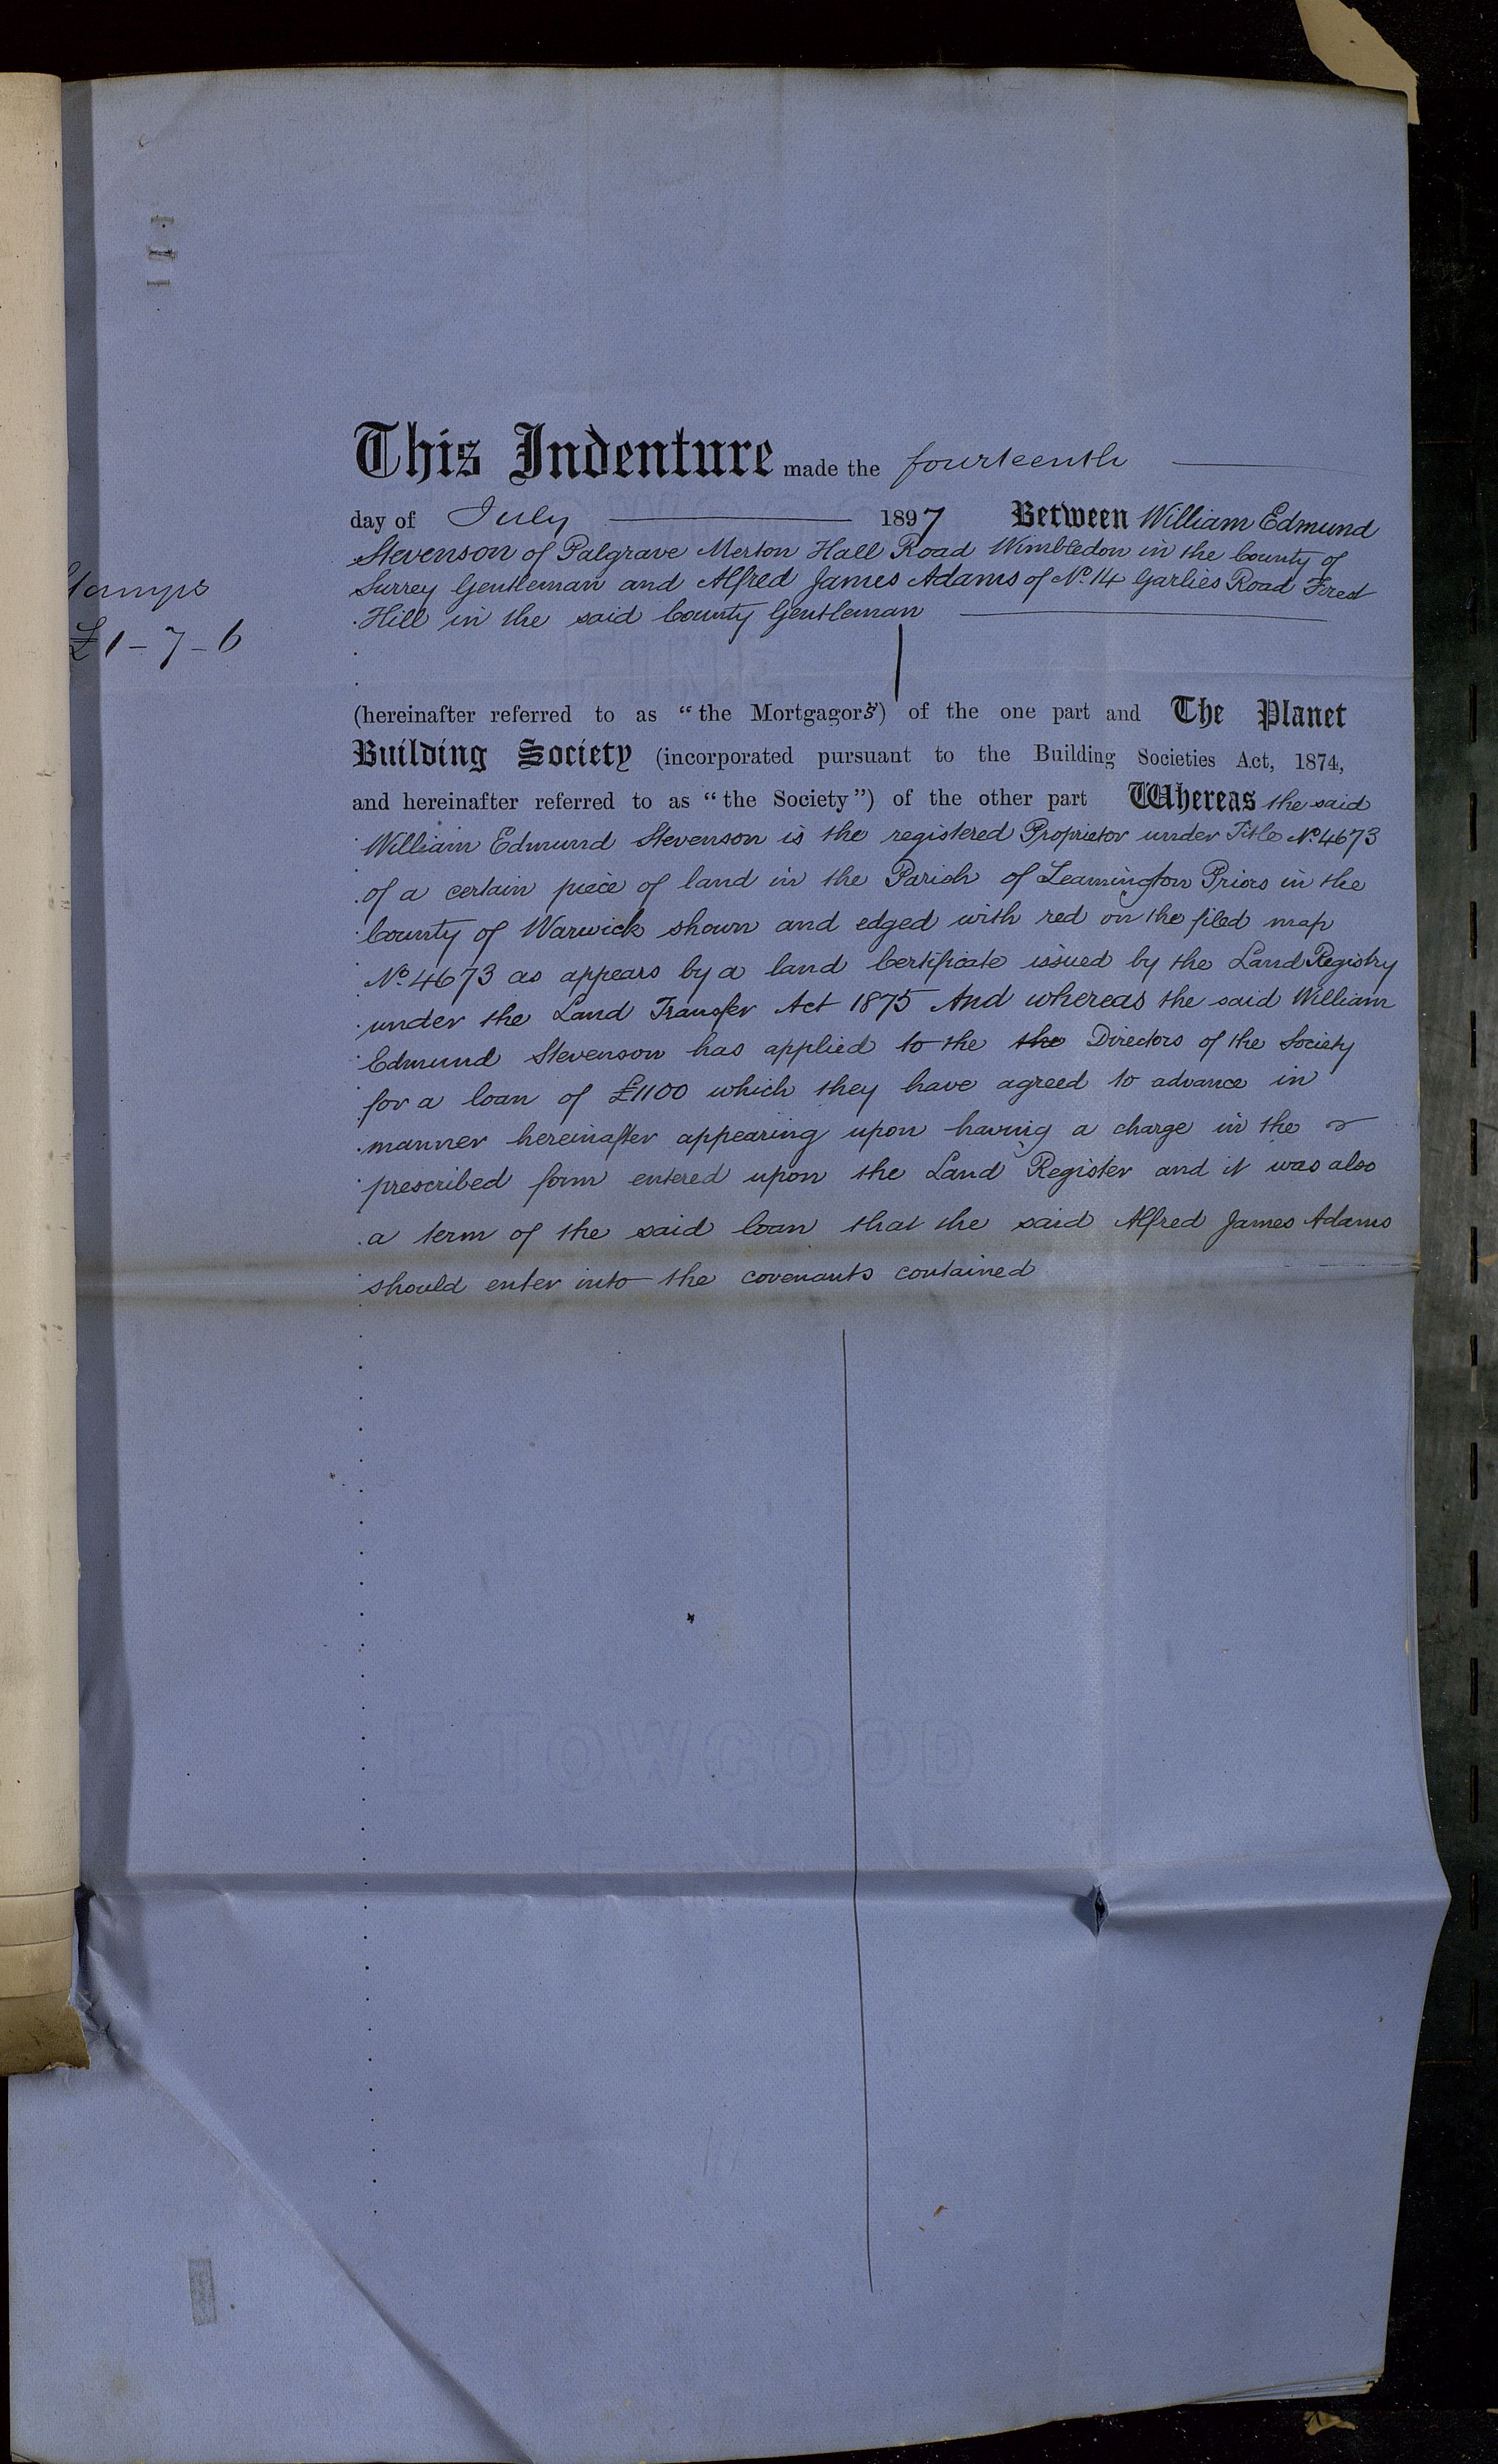 This Indenture made the fourteenth
day of July 1897 Between William Edmund
Stevenson of Palgrave Merton Hall Road Wimbledon in the County of
Surrey Gentleman and Alfred James Adams of No. 14 Garlies Road Forest
Hill in the said County Gentleman
Stamps
£1-7-6
(hereinafter referred to as "the Mortgagors") of the one part and The Planet
Building Society (incorporated pursuant to the Building Societies Act, 1874,
and hereinafter referred to as "the Society") of the other part Whereas the said
William Edmund Stevenson is the registered Proprietor under Title No. 4673
of a certain piece of land in the Parish of Leamington Priors in the
County of Warwick shown and edged with red on the filed map
No. 4673 as appears by a land Certificate issued by the Land Registry
under the Land Transfer Act 1875 And whereas the said William
Edmund Stevenson has applied to the the Directors of the Society
for a loan of £1100 which they have agreed to advance in
manner hereinafter appearing upon having a charge in the
prescribed form entered upon the Land Register and it was also
a term of the said loan that the said Alfred James Adams
should enter into the covenants contained
E TOWGOOD